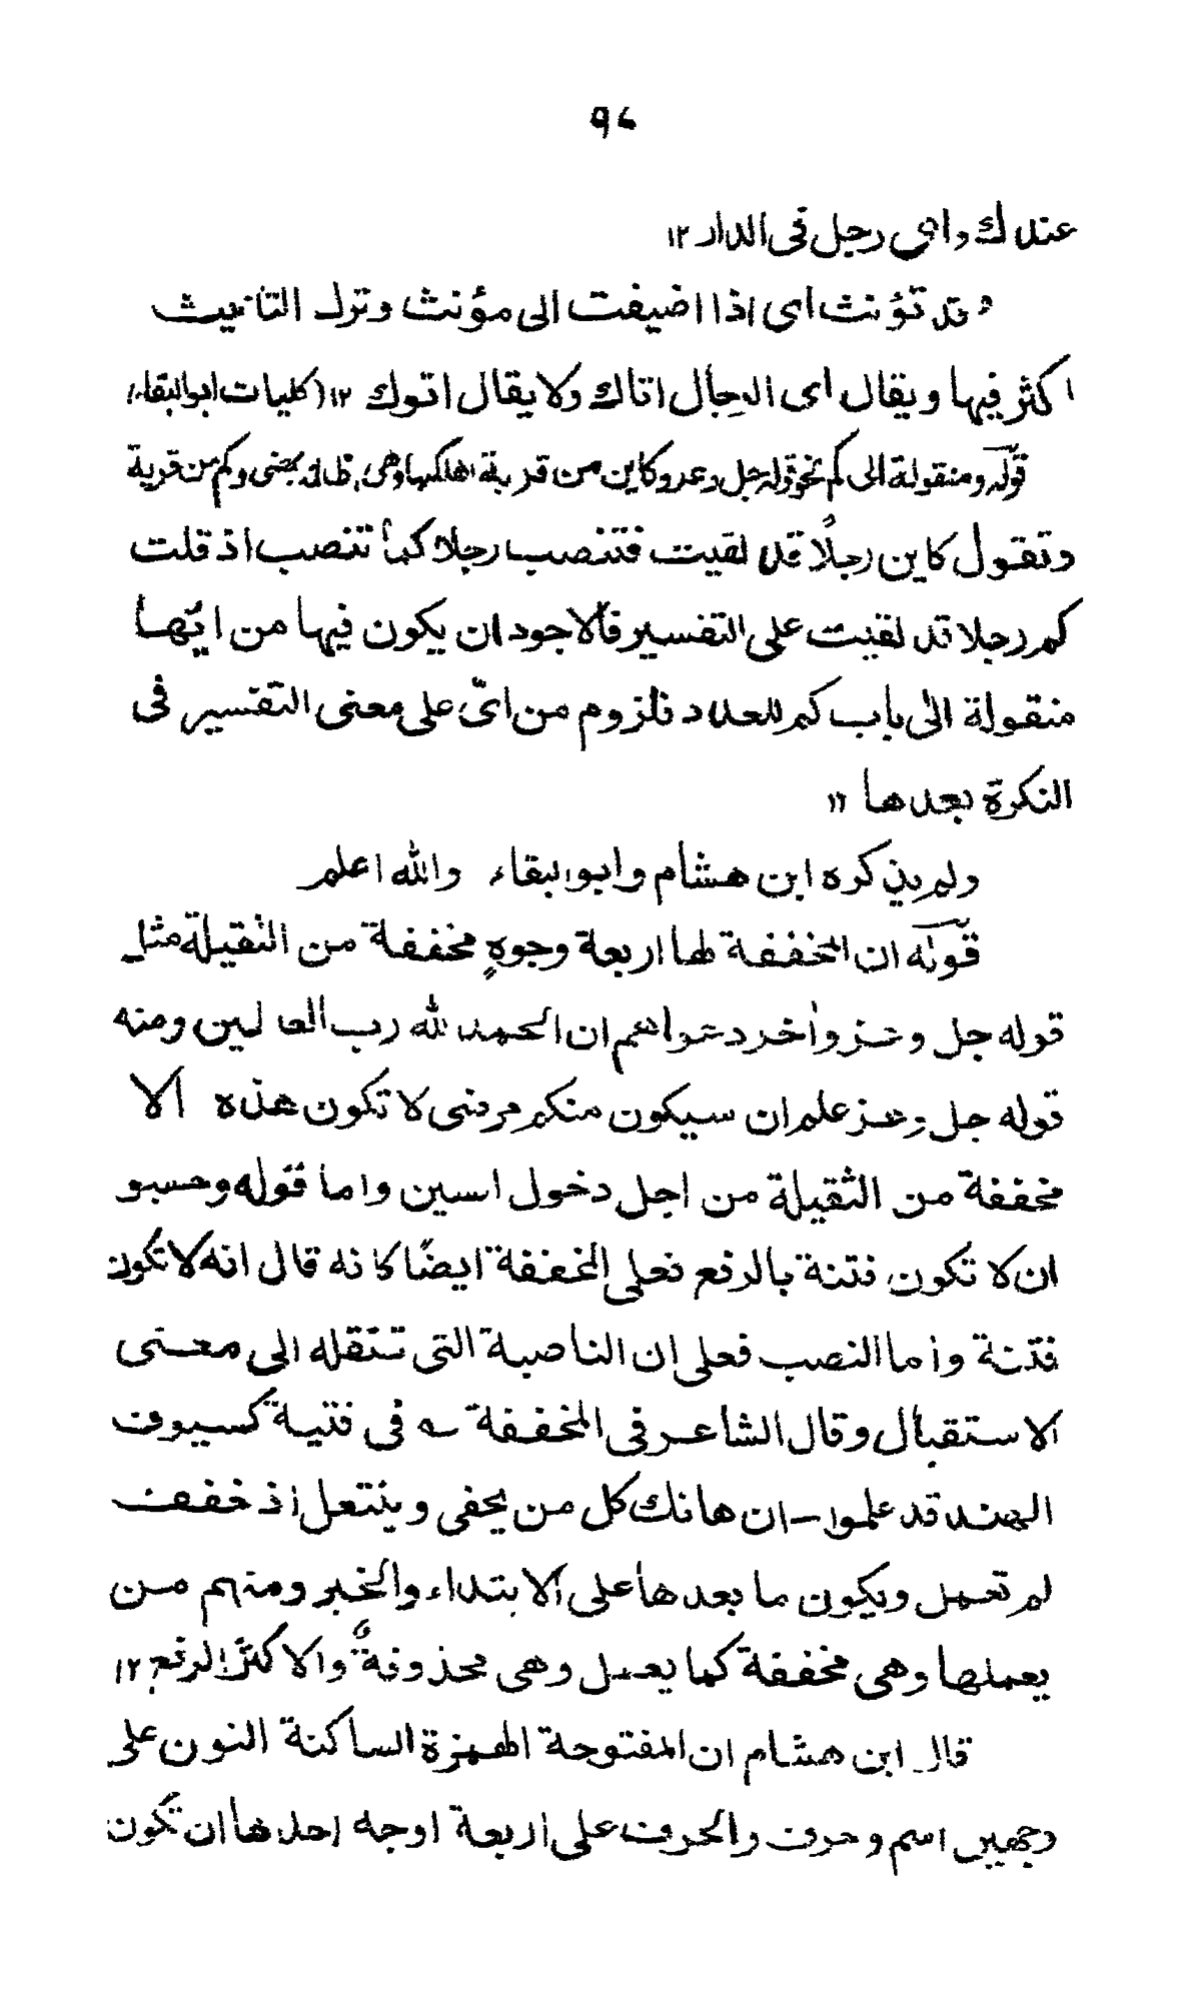 ٩٤
عندك واى رجل فى الدار ١٢
وقد تؤنث اى اذا اضيفت الى مؤنث وترك التانيث
اكثر فيها ويقال اى الرجال اتاك ولا يقال اتوك ١٢ (كليات ابو البقاء)
قوله ومنقولة الى كم نحو قوله جل وعز وكاين من قرية اهلكنها وهى ظالمة بمعنى وكم من قرية
وتقول كاين رجلاً قد لقيت فتنصب رجلا كما تنصب اذ قلت
كم رجلا قد لقيت على التفسير فالاجود ان يكون فيها من ايّها
منقولة الى باب كم للعدد فلزوم من اىّ على معنى التفسير فى
النكرة بعدها ١٢
ولم يذكره ابن هشام وابو البقاء والله اعلم
قوله ان المخففة لها اربعة وجوهٍ مخففة من الثقيلة مثل
قوله جل وعز واٰخر دعواهم ان الحمد لله رب العالمين ومنه
قوله جل وعز علم ان سيكون منكم مرضى لا تكون هذه الا
مخففة من الثقيلة من اجل دخول السين واما قوله وحسبو
ان لا تكون فتنة بالرفع فعلى المخففة ايضًا كانه قال انه لا تكون
فتنة واما النصب فعلى ان الناصبة التى تنقله الى معنى
الاستقبال وقال الشاعر فى المخففة ؎ فى فتية كسيوف
الهند قد علموا - ان هانك كل من يحفى وينتعل اذ خففت
لم تعمل ويكون ما بعدها على الابتداء والخبر ومنهم من
يعملها وهى مخففة كما يعمل وهى محذوفةٌ والاكثر الرفع ١٢
قال ابن هشام ان المفتوحة الهمزة الساكنة النون على
وجهين اسم وحرف والحرف على اربعة اوجه احدها ان تكون